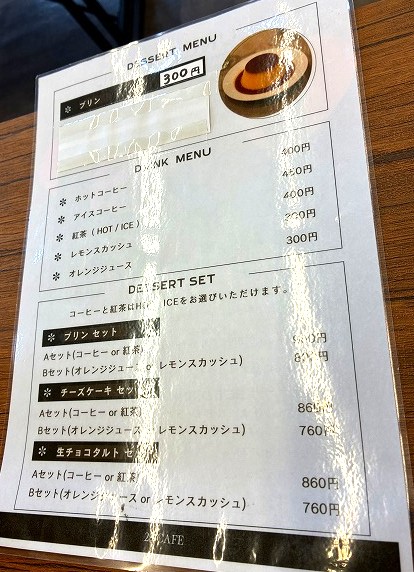 DESSERT MENU
✻ プリン 300円
DRINK MENU
✻ ホットコーヒー 400円
✻ アイスコーヒー 450円
✻ 紅茶（HOT / ICE） 400円
✻ レモンスカッシュ
✻ オレンジジュース 300円
DESSERT SET
コーヒーと紅茶はHOT ICEをお選びいただけます。
✻ プリン セット
Aセット(コーヒー or 紅茶)
Bセット(オレンジジュース or レモンスカッシュ)
✻ チーズケーキ セット
Aセット(コーヒー or 紅茶) 860円
Bセット(オレンジジュース or レモンスカッシュ) 760円
✻ 生チョコタルト
Aセット(コーヒー or 紅茶) 860円
Bセット(オレンジジュース or レモンスカッシュ) 760円
CAFE